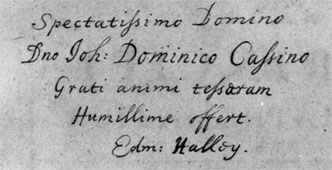 Spectatissimo Domino
Dno Joh: Dominico Cassino
Grati animi tesseram
Humillime offert.
Edm: Halley.